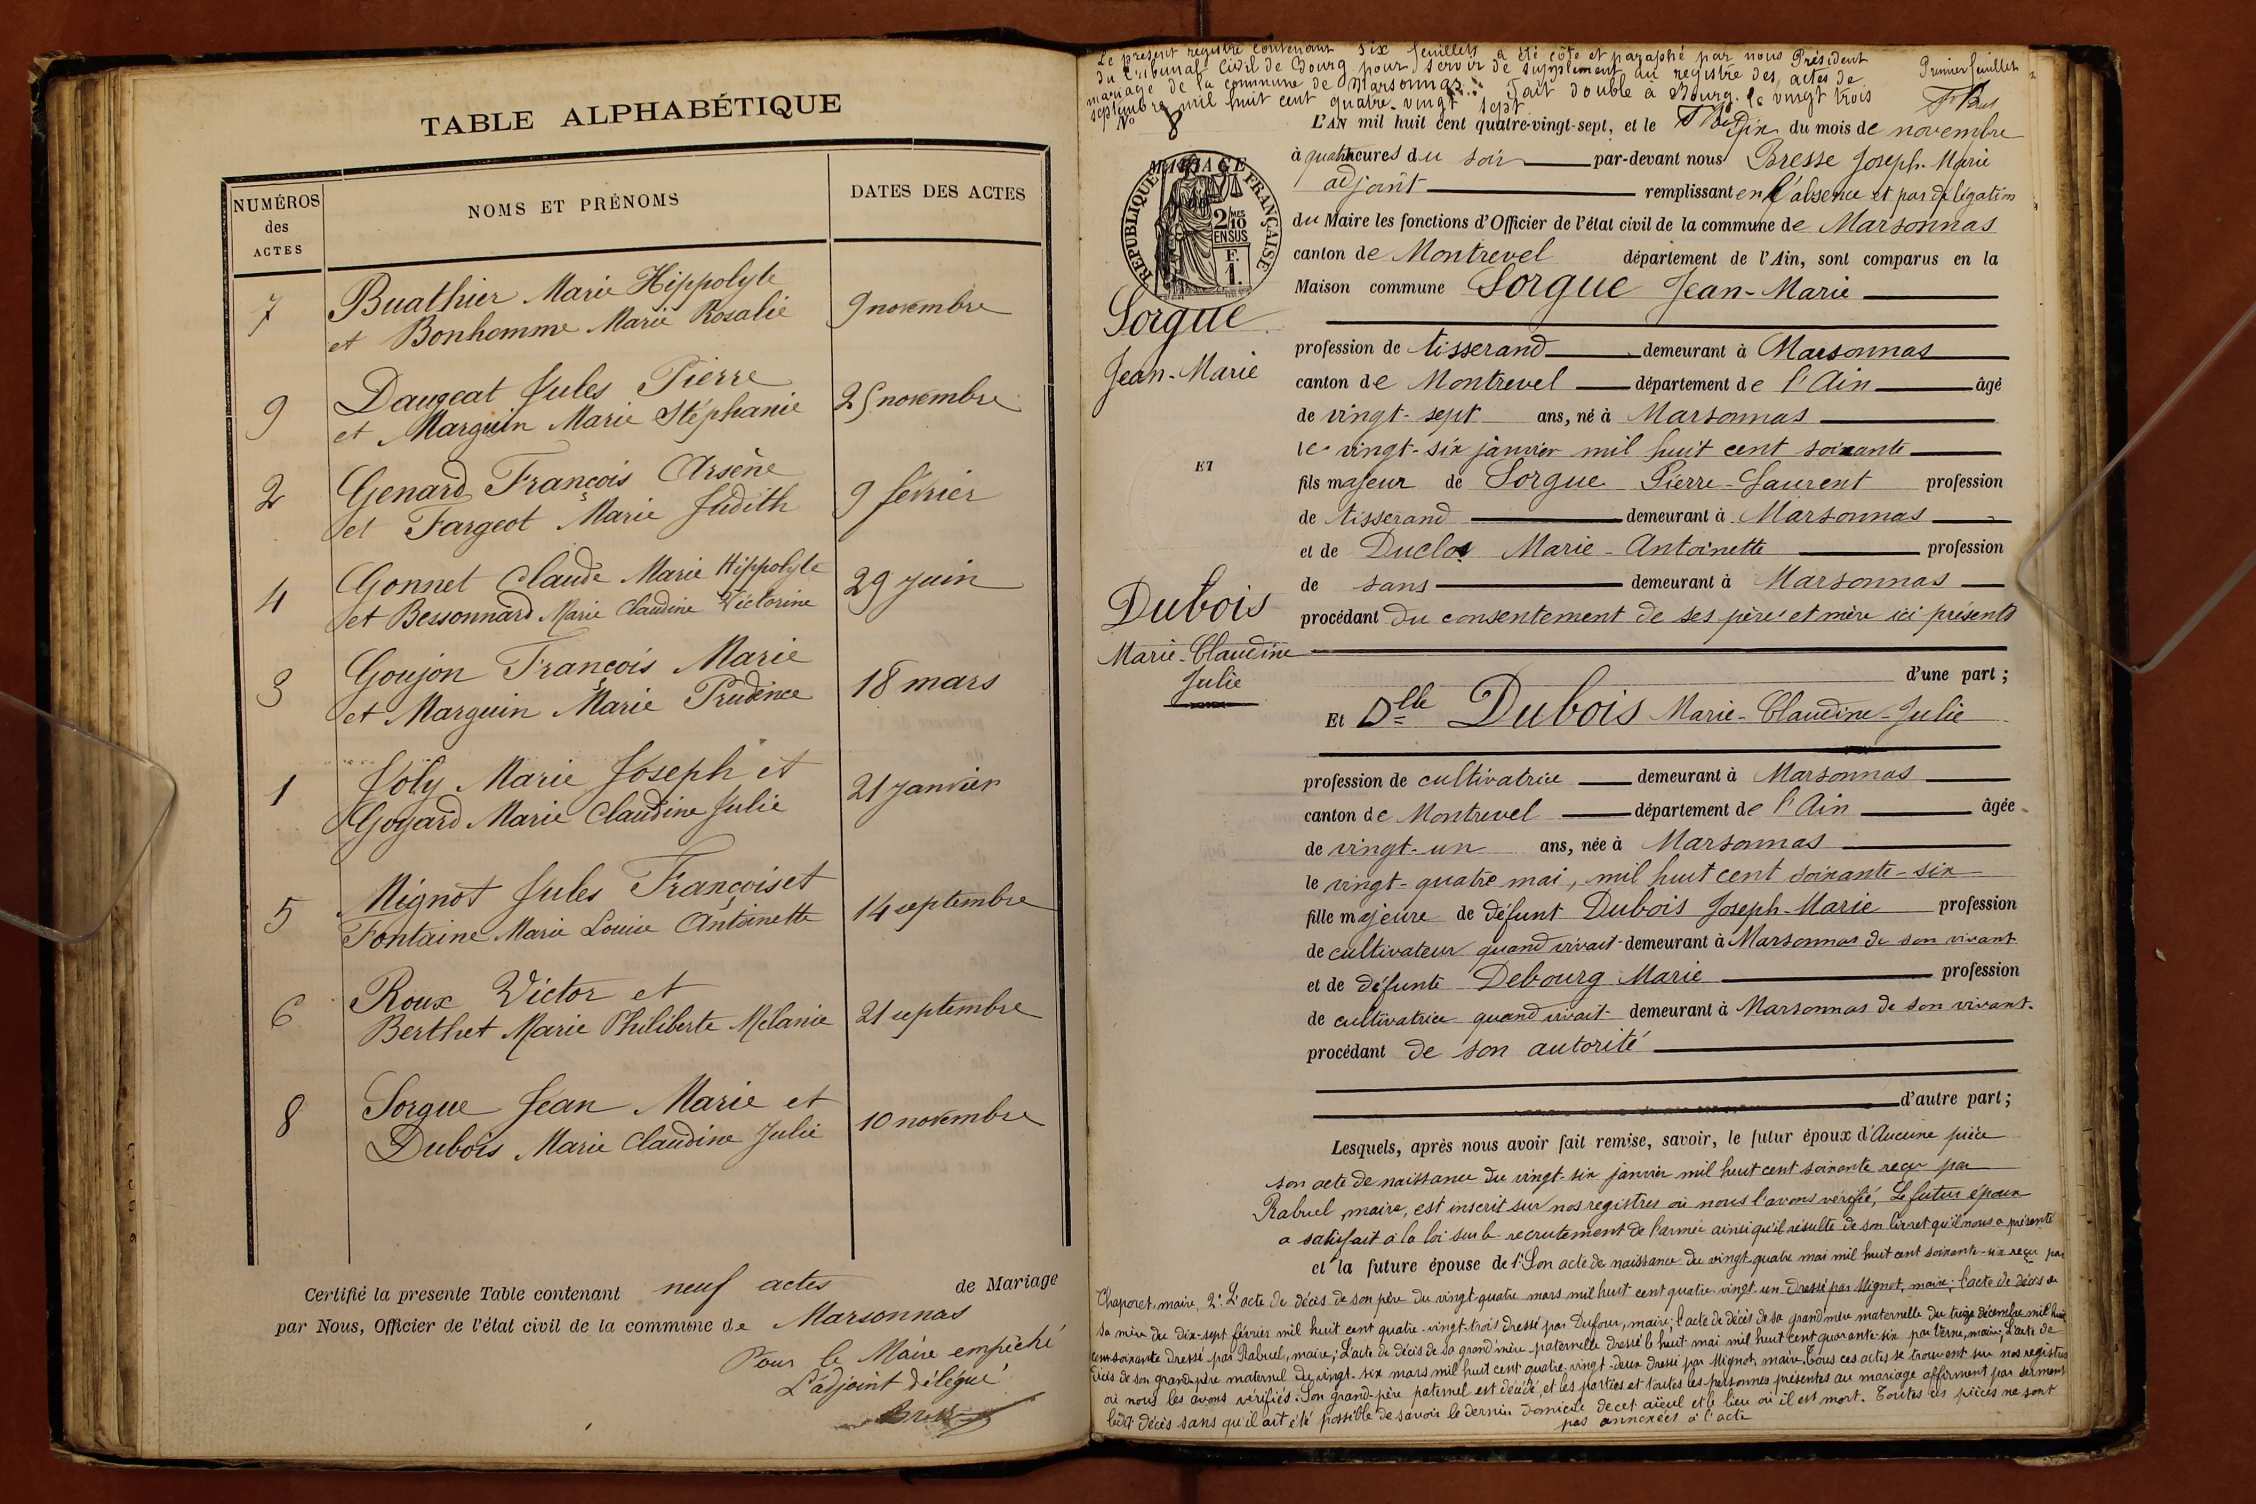 TABLE ALPHABÉTIQUE
NUMÉROS des ACTES
NOMS ET PRÉNOMS
DATES DES ACTES
7 Buathier Marie Hippolyte
et Bonhomme Marie Rosalie 9 novembre
9 Daugeat Jules Pierre
et Marguin Marie Stéphanie 25 novembre
2 Genard François Arsène
et Fargeot Marie Judith 9 février
4 Gonnet Claude Marie Hippolyte
et Bessonnard Marie Claudine Victorine 29 juin
3 Goujon François Marie
et Marguin Marie Prudence 18 mars
1 Joly Marie Joseph et
Goyard Marie Claudine Julie 21 janvier
5 Mignot Jules François et
Fontaine Marie Louise Antoinette 14 septembre
6 Roux Victor et
Berthet Marie Philiberte Melanie 21 septembre
8 Sorgue Jean Marie et
Dubois Marie Claudine Julie 10 novembre
Certifié la presente Table contenant neuf actes de Mariage
par Nous, Officier de l'état civil de la commune de Marsonnas
Pour le Maire empêché
L'adjoint délégué
Bresse
Le présent registre contenant six feuillets a été côté et paraphé par nous Président
du Tribunal Civil de Bourg pour servir de supplément au registre des actes de
mariage de la commune de Marsonnas. Fait double à Bourg, le vingt trois
septembre mil huit cent quatre-vingt sept
Premier feuillet
No 8
MARIAGE
RÉPUBLIQUE FRANÇAISE
2/10
EN SUS
F.
1.
Sorgue
Jean-Marie
ET
Dubois
Marie-Claudine
Julie
L'AN mil huit cent quatre-vingt-sept, et le Dix du mois de novembre
à quatre heures du soir par-devant nous Bresse Joseph-Marie
adjoint remplissant en l'absence et par délégation
du Maire les fonctions d'Officier de l'état civil de la commune de Marsonnas
canton de Montrevel département de l'Ain, sont comparus en la
Maison commune Sorgue Jean-Marie
profession de tisserand demeurant à Marsonnas
canton de Montrevel département de l'Ain âgé
de vingt-sept ans, né à Marsonnas
le vingt-six janvier mil huit cent soixante
fils majeur de Sorgue Pierre-Laurent profession
de tisserand demeurant à Marsonnas
et de Duclos Marie-Antoinette profession
de sans demeurant à Marsonnas
procédant du consentement de ses père et mère ici présents
d'une part;
Et Dlle Dubois Marie-Claudine-Julie
profession de cultivatrice demeurant à Marsonnas
canton de Montrevel département de l'Ain âgée
de vingt-un ans, née à Marsonnas
le vingt-quatre mai, mil huit cent soixante-six
fille majeure de défunt Dubois Joseph-Marie profession
de cultivateur quand vivait demeurant à Marsonnas de son vivant
et de défunte Debourg Marie profession
de cultivatrice quand vivait demeurant à Marsonnas de son vivant.
procédant de son autorité
d'autre part;
Lesquels, après nous avoir fait remise, savoir, le futur époux d'Aucune pièce
son acte de naissance du vingt-six janvier mil huit cent soixante reçu par
Rabuel, maire, est inscrit sur nos registres où nous l'avons vérifié, Le futur époux
a satisfait à la loi sur le recrutement de l'armée ainsi qu'il résulte de son livret qu'il nous a présenté
et la future épouse de 1º Son acte de naissance du vingt-quatre mai mil huit cent soixante-six reçu par
Chaporet, maire, 2º L'acte de décès de son père du vingt-quatre mars mil huit cent quatre-vingt-un dressé par Mignot, maire; l'acte de décès de
sa mère du dix-sept février mil huit cent quatre-vingt-trois dressé par Dufour, maire; l'acte de décès de sa grand mère maternelle du treize décembre mil huit
cent soixante dressé par Rabuel, maire; L'acte de décès de sa grand'mère paternelle dressé le huit mai mil huit cent quarante-six par Verne, maire; L'acte de
décès de son grand-père maternel du vingt-six mars mil huit cent quatre-vingt-deux dressé par Mignot, maire. Tous ces actes se trouvent sur nos registres
où nous les avons vérifiés. Son grand-père paternel est décédé, et les parties et toutes les personnes présentes au mariage affirment par serment
ledit décès sans qu'il ait été possible de savoir le dernier domicile de cet aïeul et le lieu où il est mort. Toutes ces pièces ne sont
pas annexées à l'acte